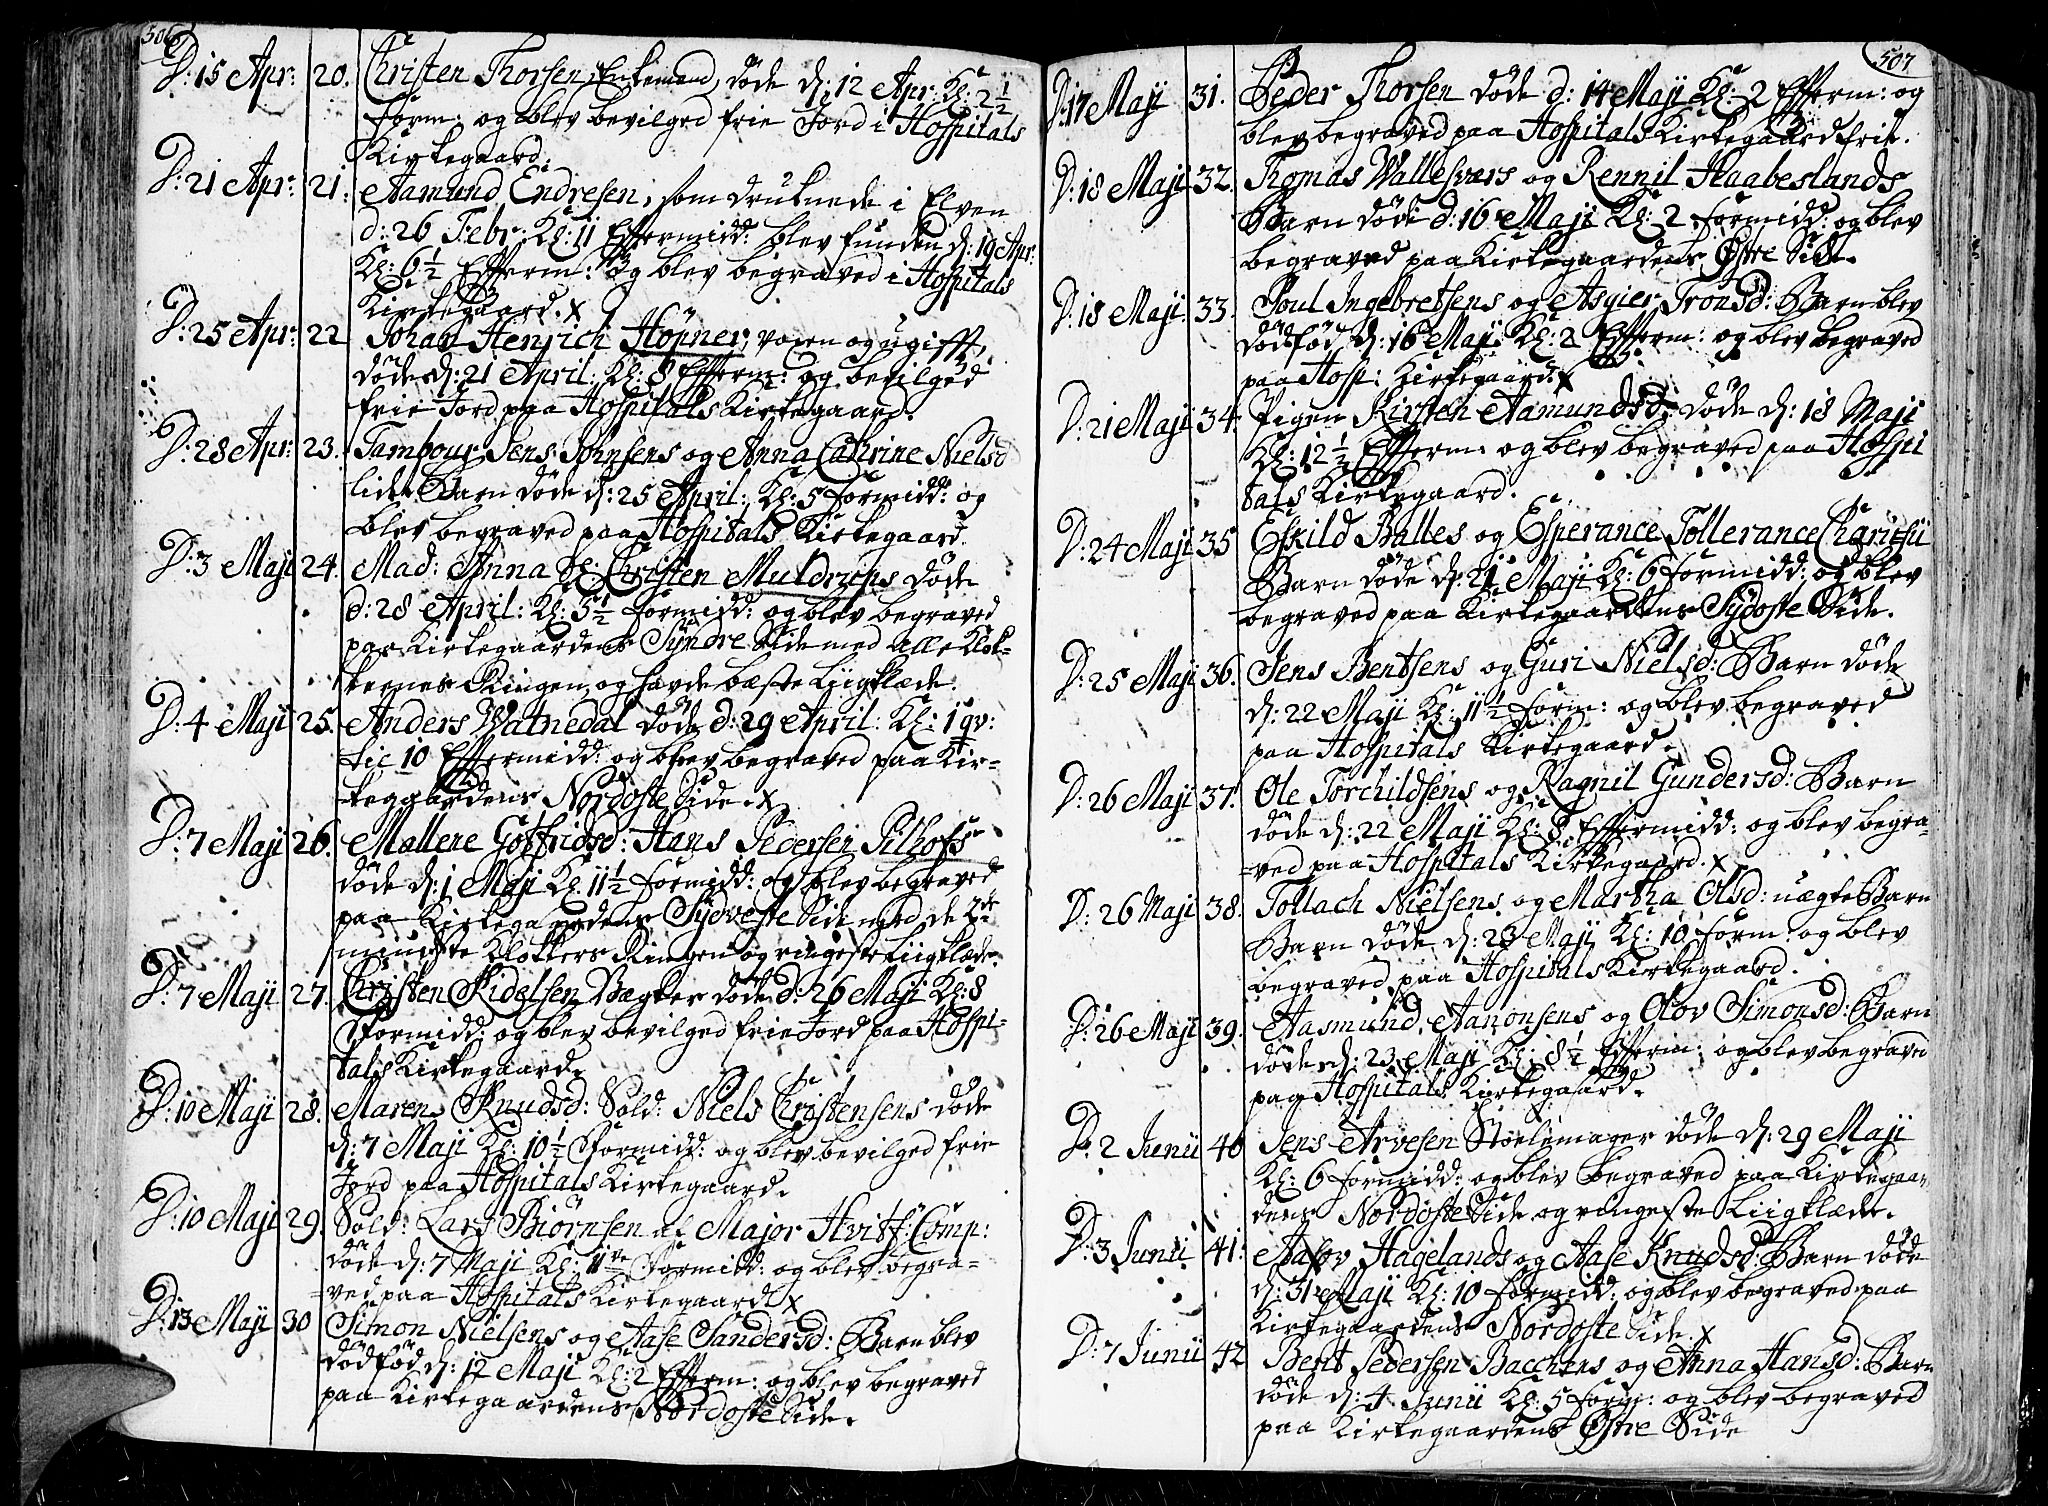 506
D: 15 Apr: 20. Christen Thorsen, Enkemand, døde d: 12 Apr: Kl: 2 1/2
form: og blev bevilged frie Jord i Hospitals
Kirkegaard.
D: 21 Apr: 21. Aamund Endresen, som druknede i Elven
d: 26 Febr: Kl: 11 Effermidd: blev funden d: 19 Apr:
Kl: 6 1/2 Efferm: og blev begraved i Hospitals
Kirkegaard. x
D: 25 Apr: 22 Johan Henrich Höpner, voxen og ugifft,
døde d: 21 April: Kl: 8 Efferm: og bevilged
frie Jord paa Hospitals Kirkegaard.
D: 28 Apr: 23. Tambour Jens Johnsens og Anna Cathrine Nielsd
lidet Barn døde d: 25 April: Kl: 5 formidd: og
blev begraved paa Hospitals Kirkegaard.
D: 3 Maji 24. Mad: Anna Christen Muldrups døde
d: 28 April: Kl: 5 1/2 formidd: og blev begraved
paa Kirkegaardens Syndre Side med alle Klok-
kernes Ringen, og havde bæste Liigklæde.
D: 4 Maji 25. Anders Watnedal døde d: 29 April: Kl: 1 qv:
til 10 Effermidd: og blev begraved paa Kir-
kegaardens Nordoste Side. x
D: 7 Maji 26. Mallene Gotfridsd: Hans Pedersen Pilhofs
døde d: 1 Maji Kl: 11 1/2 formidd: og blev begraved
paa Kirkegaardens Sydveste Side med de 2de
mindste Klokkers Ringen og ringeste Liigklæde.
D: 7 Maji 27. Christen Kidelsen Bægker døde d: 26 Maji Kl: 8
Formidd: og blev bevilged frie Jord paa Hospi-
tals Kirkegaard.
D: 10 Maji 28. Maren Knudsd: Sold: Niels Christensens døde
d: 7 Maji Kl: 10 1/2 Formidd: og blev bevilged frie
Jord paa Hospitals Kirkegaard.
D: 10 Maji 29. Sold: Lars Biörnsen af Major Hvitf: Comp:
døde d: 7 Maji Kl: 11 Formidd: og blev begra-
ved paa Hospitals Kirkegaard x
D: 13 Maji 30 Simon Nielsens og Aase Sandersd: Barn blev
dødfød d: 12 Maji Kl: 2 Efferm: og blev begraved
paa Kirkegaardens Nordoste Side.
507
D: 17 Maji 31. Peder Thorsen døde d: 14 Maji Kl: 2 Efferm: og
blev begraved paa Hospitals Kirkegaard frie.
D: 18 Maji 32. Thomas Wallesværs og Rennil Haabeslands
Barn døde d: 16 Maji Kl: 2 formidd: og blev
begraved paa Kirkegaardens Østre Side.
D: 18 Maji: 33. Poul Ingebretsens og Asgier Tronsd: Barn blev
dødfød d: 16 Maji Kl: 2 Efferm: og blev begraved
paa Hosp: Kirkegaard. x
D: 21 Maji 34. Pigen Kirsten Aamundsd: døde d: 18 Maji
Kl: 12 1/2 Efferm: og blev begraved paa Hospi
tals Kirkegaard.
D: 24 Maji 35 Eskild Balles og Esperance Tollerance
Barn døde d: 21 Maji Kl: 6 formidd: og blev
begraved paa Kirkegaardens Sydoste Side.
D: 25 Maji 36. Jens Bentsens og Guri Nielsd: Barn døde
d: 22 Maji Kl: 11 1/2 form: og blev begraved
paa Hospitals Kirkegaard.
D: 26 Maji 37. Ole Torchildsens og Ragnil Gundersd: Barn
døde d: 22 Maji Kl: 8 Effermidd: og blev begra-
-ved paa Hospitals Kirkegaard. x
D: 26 Maji 38. Tollach Nielsens og Martha Olsd: uægte Barn
Barn døde d: 23 Maji Kl: 10 form: og blev
begraved paa Hospitals Kirkegaard.
D: 26 Maji 39. Aasmund Aanonsens og Olov Simonsd: Barn
døde d: 23 Maji Kl: 8 1/2 Efferm: og blev begraved
paa Hospitals Kirkegaard.
D: 2 Junii 40 Jens Arvesen Stoelemager døde d: 29 Maji
Kl: 6 formidd: og blev begraved paa Kirkegaar-
dens Nordoste Side og ringeste Liigklæde.
D: 3 Junii 41. Aasov Hagelands og Aase Knudsd: Barn døde
d: 31 Maji Kl: 10 formidd: og blev begraved paa
Kirkegaardens Nordoste Side. x
D: 7 Junii 42 Berit Pedersen Bacchens og Anna Hansd: Barn
døde d: 4 Junii Kl: 5 form: og blev begraved
paa Kirkegaardens Østre Side